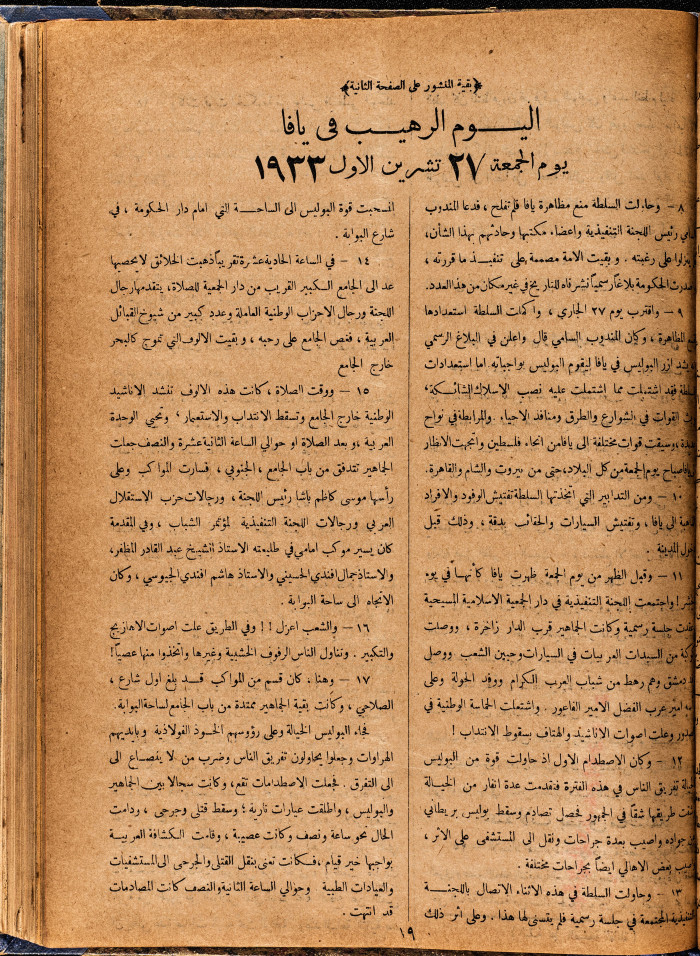 ﴿بقية المنشور على الصفحة الثانية﴾
اليوم الرهيب في يافا
يوم الجمعة ٢٧ تشرين الاول ١٩٣٣
٨ — وحاولت السلطة منع مظاهرة يافا فلم تفلح ، فدعا المندوب
رئيس اللجنة التنفيذية واعضاء مكتبها وحادثهم بهذا الشأن،
على رغبته . وبقيت الامة مصممة على تنفيذ ما قررته ،
الحكومة بلاغاً رسمياً نشرناه للتاريخ في غير مكان من هذا العدد.
٩ — واقترب يوم ٢٧ الجاري ، واكملت السلطة استعدادها
المظاهرة ، وكان المندوب السامي قال واعلن في البلاغ الرسمي
ازر البوليس في يافا ليقوم البوليس بواجباته اما استعدادات
فقد اشتملت مما اشتملت عليه نصب الاسلاك الشائكة،
القوات في الشوارع والطرق ومنافذ الاحياء . والمرابطة في نواح
وسيقت قوات مختلفة الى يافا من انحاء فلسطين واتجهت الانظار
صباح يوم الجمعة من كل البلاد، حتى من بيروت والشام والقاهرة.
١٠ — ومن التدابير التي اتخذتها السلطة تفتيش الوفود والافراد
الى يافا ، وتفتيش السيارات والحقائب بدقة ، وذلك قبل
المدينة .
١١ — وقبل الظهر من يوم الجمعة ظهرت يافا كأنها في يوم
! واجتمعت اللجنة التنفيذية في دار الجمعية الاسلامية المسيحية
جلسة رسمية وكانت الجماهير قرب الدار زاخرة ، ووصلت
من السيدات العربيات في السيارات وحيين الشعب ووصل
دمشق وهم رهط من شباب العرب الكرام ووفد الحولة وعلى
امير عرب الفضل الامير الفاعور . واشتعلت الحماسة الوطنية في
وعلت اصوات الاناشيد والهتاف بسقوط الانتداب !
١٢ — وكان الاصطدام الاول اذ حاولت قوة من البوليس
تفريق الناس في هذه الفترة فتقدمت عدة انفار من الخيالة
طريقها شقاً في الجمهور فحصل تصادم وسقط بوليس بريطاني
جواده واصيب بعدة جراحات ونقل الى المستشفى على الاثر ،
بعض الاهالي ايضاً بجراحات مختلفة .
١٣ — وحاولت السلطة في هذه الاثناء الاتصال باللجنة
المجتمعة في جلسة رسمية فلم يتسنى لها هذا . وعلى اثر ذلك
انسحبت قوة البوليس الى الساحة التي امام دار الحكومة ، في
شارع البوابة .
١٤ — في الساعة الحادية عشرة تقريباً ذهبت الخلائق لا يحصيها
عد الى الجامع الكبير القريب من دار الجمعية للصلاة، يتقدمها رجال
اللجنة ورجال الاحزاب الوطنية العاملة وعدد كبير من شيوخ القبائل
العربية ، فغص الجامع على رحبه ، وبقيت الالوف التي تموج كالبحر
خارج الجامع
١٥ — ووقت الصلاة ، كانت هذه الالوف تنشد الاناشيد
الوطنية خارج الجامع وتسقط الانتداب والاستعمار ، وتحيي الوحدة
العربية ، و بعد الصلاة او حوالي الساعة الثانية عشرة والنصف جعلت
الجماهير تتدفق من باب الجامع ، الجنوبي ، فسارت المواكب وعلى
رأسها موسى كاظم باشا رئيس اللجنة ، ورجالات حزب الاستقلال
العربي ورجالات اللجنة التنفيذية لمؤتمر الشباب ، وفي المقدمة
كان يسير موكب امامي في طليعته الاستاذ الشيخ عبد القادر المظفر،
والاستاذ جمال افندي الحسيني والاستاذ هاشم افندي الجيوسي ، وكان
الاتجاه الى ساحة البوابة .
١٦ — والشعب اعزل ! ! وفي الطريق علت اصوات الاهازيج
والتكبير . وتناول الناس الرفوف الخشبية وغيرها واتخذوا منها عصياً!
١٧ — وهنا ، كان قسم من المواكب قد بلغ اول شارع ،
الصلاحي ، وكانت بقية الجماهير ممتدة من باب الجامع لساحة البوابة.
فجاء البوليس الخيالة وعلى رؤوسهم الخوذ الفولاذية وبايديهم
الهراوات وجعلوا يحاولون تفريق الناس وضرب من لا ينصاع الى
الى التفرق . فجعلت الاصطدامات تقع، وكانت سجالا بين الجماهير
والبوليس ، واطلقت عبارات نارية ؛ وسقط قتلى وجرحى ، ودامت
الحال نحو ساعة ونصف وكانت عصيبة ، وقامت الكشافة العربية
بواجبها خير قيام ، فكانت تعنى بنقل القتلى والجرحى الى المستشفيات
والعيادات الطبية وحوالي الساعة الثانية والنصف كانت المصادمات
قد انتهت .
١٩